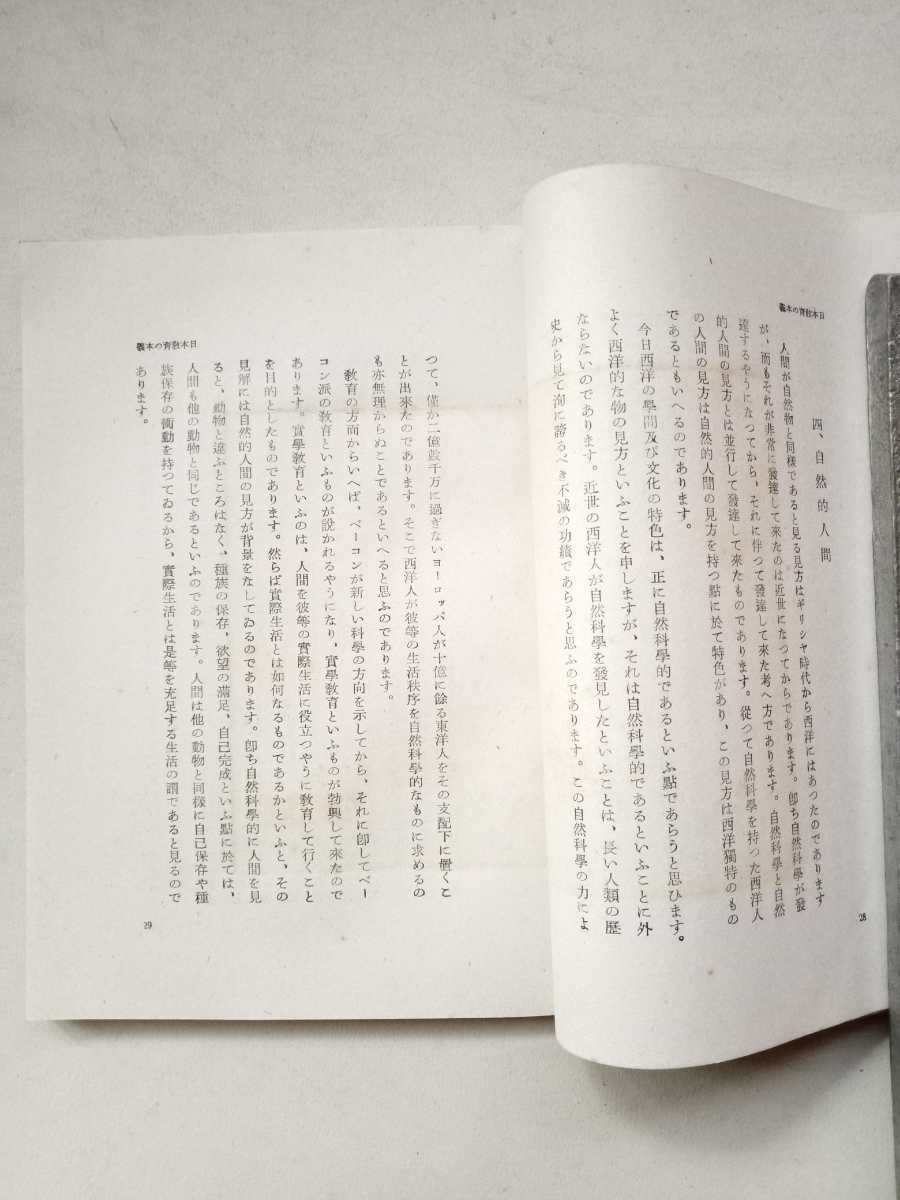 日本敎育の本義
四、自然的人間
人間が自然物と同樣であると見る見方はギリシヤ時代から西洋にはあつたのであります
が、而もそれが非常に發達して來たのは近世になつてからであります。卽ち自然科學が發
達するやうになつてから、それに伴つて發達して來た考へ方であります。自然科學と自然
的人間の見方とは並行して發達して來たものであります。從つて自然科學を持つた西洋人
の人間の見方は自然的人間の見方を持つ點に於て特色があり、この見方は西洋獨特のもの
であるともいへるのであります。
今日西洋の學問及び文化の特色は、正に自然科學的であるといふ點であらうと思ひます。
よく西洋的な物の見方といふことを申しますが、それは自然科學的であるといふことに外
ならないのであります。近世の西洋人が自然科學を發見したといふことは、長い人類の歷
史から見て洵に誇るべき不滅の功績であらうと思ふのであります。この自然科學の力によ
28
つて、僅か二億數千万に過ぎないヨーロッパ人が十億に餘る東洋人をその支配下に置くこ
とが出來たのであります。そこで西洋人が彼等の生活秩序を自然科學的なものに求めるの
も亦無理からぬことであるといへると思ふのであります。
敎育の方面からいへば、ベーコンが新しい科學の方向を示してから、それに卽してベー
コン派の敎育といふものが說かれるやうになり、實學敎育といふものが勃興して來たので
あります。實學敎育といふのは、人間を彼等の實際生活に役立つやうに敎育して行くこと
を目的としたものであります。然らば實際生活とは如何なるものであるかといふと、その
見解には自然的人間の見方が背景をなしてゐるのであります。卽ち自然科學的に人間を見
ると、動物と違ふところはなく、種族の保存、欲望の滿足、自己完成といふ點に於ては、
人間も他の動物と同じであるといふのであります。人間は他の動物と同樣に自己保存や種
族保存の衝動を持つてゐるから、實際生活とは是等を充足する生活の謂であると見るので
あります。
日本敎育の本義
29